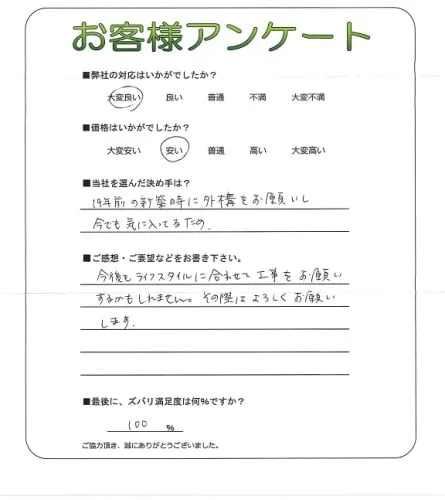 お客様アンケート
■弊社の対応はいかがでしたか?
大変良い 良い 普通 不満 大変不満
■価格はいかがでしたか?
大変安い 安い 普通 高い 大変高い
■当社を選んだ決め手は?
19年前の新築時に外構をお願いし
今でも気に入ってるため.
■ご感想・ご要望などをお書き下さい。
今後もライフスタイルに合わせて工事をお願い
するかもしれません。その際はよろしくお願い
します.
■最後に、ズバリ満足度は何%ですか?
100 %
ご協力頂き、誠にありがとうございました。